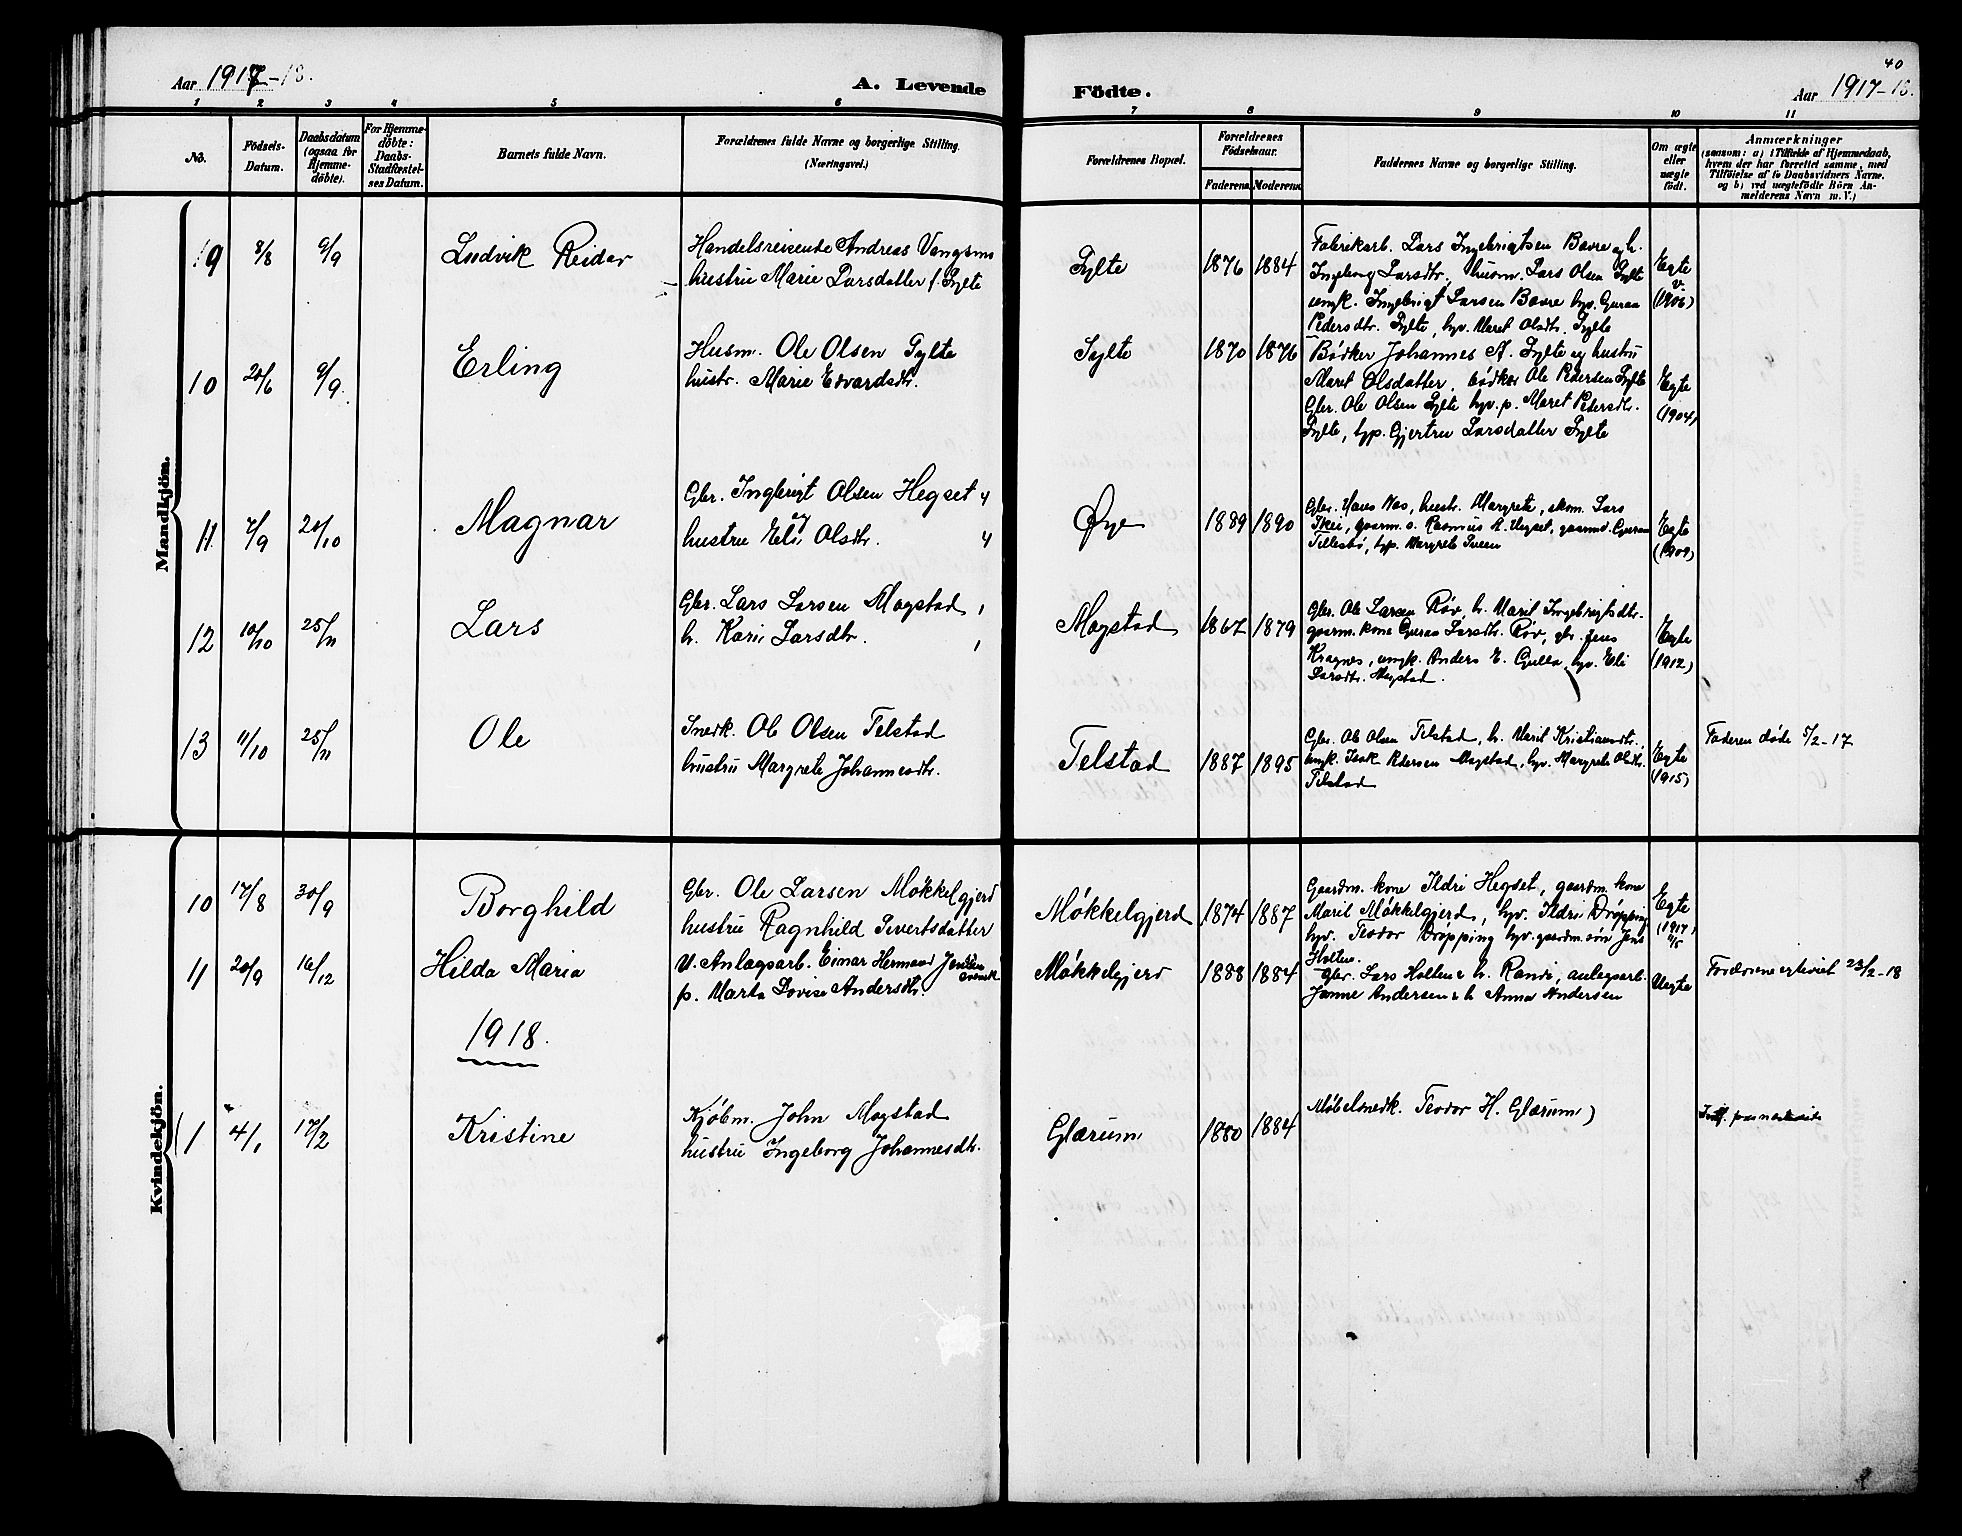 40
Aar 1917-18.
A. Levende Födte.
Aar 1917-18.
1 2 3 4 5 6 7 8 9 10 11
No.
Födsels-Datum.
Daabsdatum (ogsaa for Hjemme-döbte).
For Hjemme-döbte: Daabs-Stadfæstel-ses Datum.
Barnets fulde Navn.
Forældrenes fulde Navne og borgerlige Stilling.
(Næringsvei.)
Forældrenes Bopæl.
Forældrenes Födselsaar.
Faderens. Moderens.
Faddernes Navne og borgerlige Stilling.
Om ægte eller uægte födt.
Anmærkninger
(saasom: a) i Tilfælde af Hjemmedaab,
hvem der har forrettet samme, med
Tilföielse af to Daabsvidners Navne.
og b) ved uægtefödte Börn An-
melderens Navn m. V.)
Mandkjön.
19 8/8 9/9 Ludvik Reidar
Handelsreisende Andreas Vangsnes
hustru Marie Larsdatter f. Sylte
Sylte 1876 1884
Fabrikarb. Lars Ingebrigtsen Bævre og h.
Ingeborg Larsdtr, husm. Lars Olsen Sylte
ungk. Ingebrigt Larsen Bævre hyv. Guraa
Pedersdtr. Sylte, hyv. Maret Olsdtr. Sylte
Egte
(1906)
10 20/6 9/9. Erling
Husm. Ole Olsen Sylte
hustr. Marie Edvardsdtr.
Sylte 1870 1876
Bödker Johannes A. Sylte og hustru
Maret Olsdatter, bødker Ole Pedersen Sylte
Gbr. Ole Olsen Sylte hyv. p. Maret Pedersdtr.
Sylte, hyp. Gjertru Larsdatter Sylte
Egte
(1904)
11 7/9 21/10 Magnar
Gbr. Ingbrigt Olsen Hegset
og
hustru Eli Olsdtr.
Øye 1889 1890
Gbr. Hans Aas, hustr. Margrete, skom. Lars
Skei, gaarm. s. Rasmus R. Hegset, gaarmd. Guraa
Tellesbø, hyp. Margrete Sveen
Egte
(1909)
12 10/10 25/11 Lars
Gbr. Lars Larsen Mogstad
h. Kari Larsdtr.
Mogstad 1867 1879
Gbr. Ole Larsen Røv, h. Marit Ingebrigtsdtr.
gaarm. kone Guraa Larsdtr. Røv, gbr. Jens
Kragnes, ungk. Anders E. Gulla, hyv. Eli
Larsdtr. Mogstad.
Egte
(1912)
13 11/10 25/11 Ole
Snedk. Ole Olsen Telstad
hustru Margrete Johannesdtr.
Telstad 1887 1895
Gbr. Ole Olsen Telstad, h. Marit Kristiansdtr.,
ungk. Isak Pedersen Mogstad, hyv. Margrete Olsdtr.
Telstad
Egte
(1915)
Faderen døde 5/2-17
Kvindekjön.
10 17/8 30/9 Borghild
Gbr. Ole Larsen Møkkelgjerd
hustru Ragnhild Sivertsdatter
Møkkelgjerd 1874 1887
Gaardm. kone Ildri Hegset, gaardm. kone
Marit Møkkelgjerd, hyv. Ildri Drøpping
hyv. Teodor Drøpping hyv. gaardm. søn Jens
Holten.
Egte
(1917)
11 20/9 16/12 Hilda Maria
U. Anlægsarb. Einar Hermand Jensen
svensk
p. Marta Lovise Andersdtr.
Møkkelgjerd 1888 1884
Gbr. Lars Holten & h. Randi, anlægsarb.
Janne Andersen & h Anna Andersen
Uegte
Forældrene egteviet 23/2-18
1918.
1 4/1 17/2 Kristine
Kjøbm. John Mogstad
hustru Ingeborg Johannesdtr.
Glærum 1880 1884
Møbelsnedk. Teodor H. Glærum)